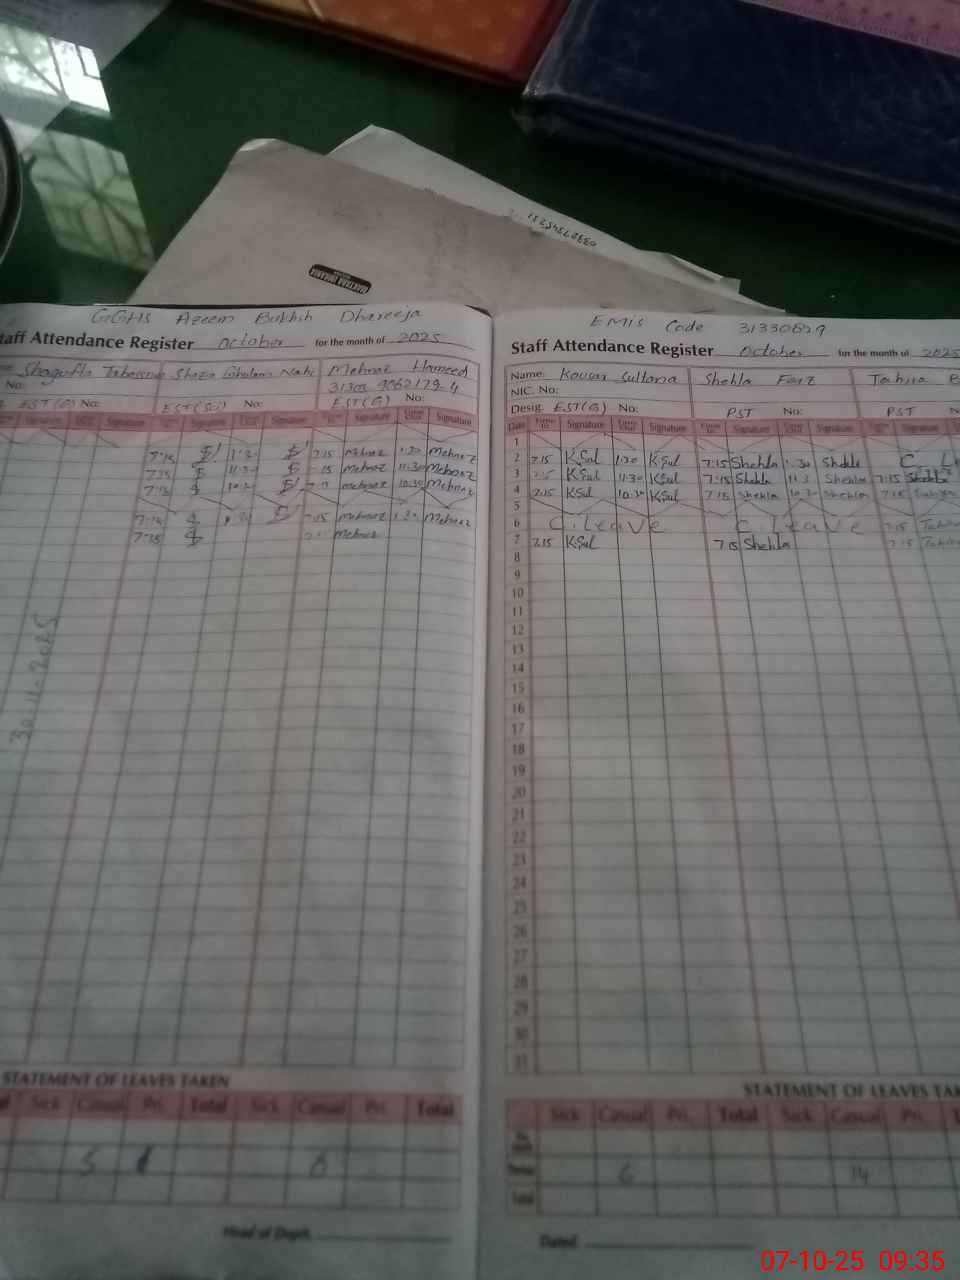 03327345231
GGHS Azeem Bukhsh Dhareeja
Staff Attendance Register October for the month of 2025
Shagufta Tabassum Shazia Ghulam Nabi Mehnaz Hameed
No:
EST(G) No: EST(Sci) No: EST(G) No:
Signature Signature Signature Signature Signature
7:15 1:30 7:15 Mehnaz 1:30 Mehnaz
7:15 11:30 7:15 Mehnaz 11:30 Mehnaz
7:15 10:30 7:15 Mehnaz 10:30 Mehnaz
7:15 7:15 Mehnaz 1:30 Mehnaz
7:15 Mehnaz
30-11-2025
STATEMENT OF LEAVES TAKEN
Sick Casual Pri. Total Sick Casual Pri. Total
5
6
Head of Deptt.
EMIS Code 31330629
Staff Attendance Register October for the month of 2025
Name: Kousar Sultana Shehla Faiz Tahira B
NIC. No:
Desig. EST(G) No: PST No: PST
Date Signature Signature Signature Signature Signature
1
2 7:15 K.Sul 1:30 K.Sul 7:15 Shehla 1:30 Shehla C. L
3 7:15 K.Sul 11:30 K.Sul 7:15 Shehla 11:3 Shehla 7:15
4 7:15 K.Sul 10:30 K.Sul 7:15 Shehla 10:30 Shehla 7:15 Tahira
5
6 C. Leave C. Leave 7:15 Tahira
7 7:15 K.Sul 7:15 Shehla 7:15 Tahira
8
9
10
11
12
13
14
15
16
17
18
19
20
21
22
23
24
25
26
27
28
29
30
31
STATEMENT OF LEAVES TAK
Sick Casual Pri. Total Sick Casual Pri.
6 14
Total
Dated:
07-10-25 09:35